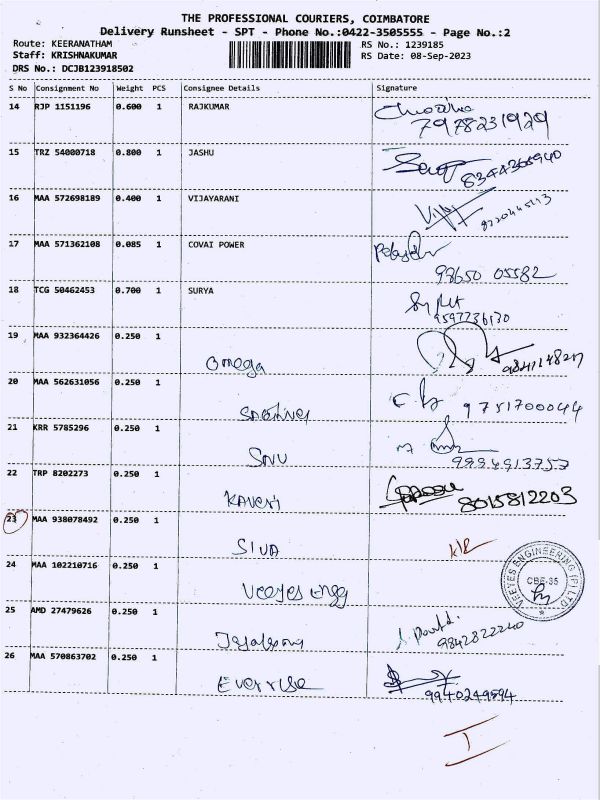 THE PROFESSIONAL COURIERS, COIMBATORE
Delivery Runsheet - SPT - Phone No.:0422-3505555 - Page No.:2
Route: KEERANATHAM RS No.: 1239185
Staff: KRISHNAKUMAR RS Date: 08-Sep-2023
DRS No.: DCJB123918502
S No Consignment No Weight PCS Consignee Details Signature
14 RJP 1151196 0.600 1 RAJKUMAR
7978231929
15 TRZ 54000718 0.800 1 JASHU
8344365940
16 MAA 572698189 0.400 1 VIJAYARANI
17 MAA 571362108 0.085 1 COVAI POWER
98650 05582
18 TCG 50462453 0.700 1 SURYA
9597736170
19 MAA 932364426 0.250 1
Omega
20 MAA 562631056 0.250 1
9751700044
21 KRR 5785296 0.250 1
SNU
9994913757
22 TRP 8202273 0.250 1
Kaveri 8015812203
23 MAA 938078492 0.250 1
SIVA
24 MAA 102210716 0.250 1
Veeyes Engg
VEEYES ENGINEERING (P) LTD
CBE-35
25 AMD 27479626 0.250 1
9842822240
26 MAA 570863702 0.250 1
Everrise 9940249894